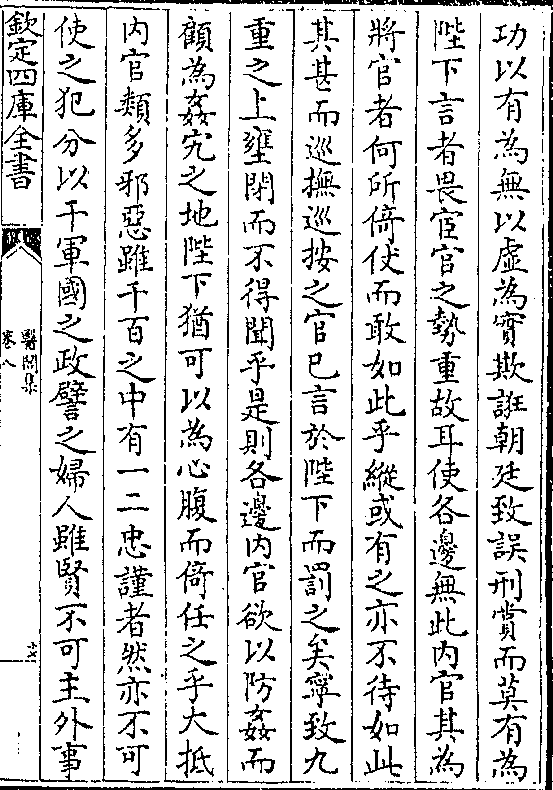 功以有為無以虛為實欺誑朝廷致誤刑賞而莫有為
陛下言者畏宦官之勢重故耳使各邊無此内官其為
將官者何所倚仗而敢如此乎縱或有之亦不待如此
其甚而巡撫巡按之官已言於陛下而罰之矣寧致九
重之上壅閉而不得聞乎是則各邊内官欲以防姦而
顧為姦宄之地陛下猶可以為心腹而倚任之乎大抵
内官類多邪惡雖千百之中有一二忠謹者然亦不可
使之犯分以干軍國之政譬之婦人雖賢不可主外事
欽定四庫全書
醫閭集
卷八